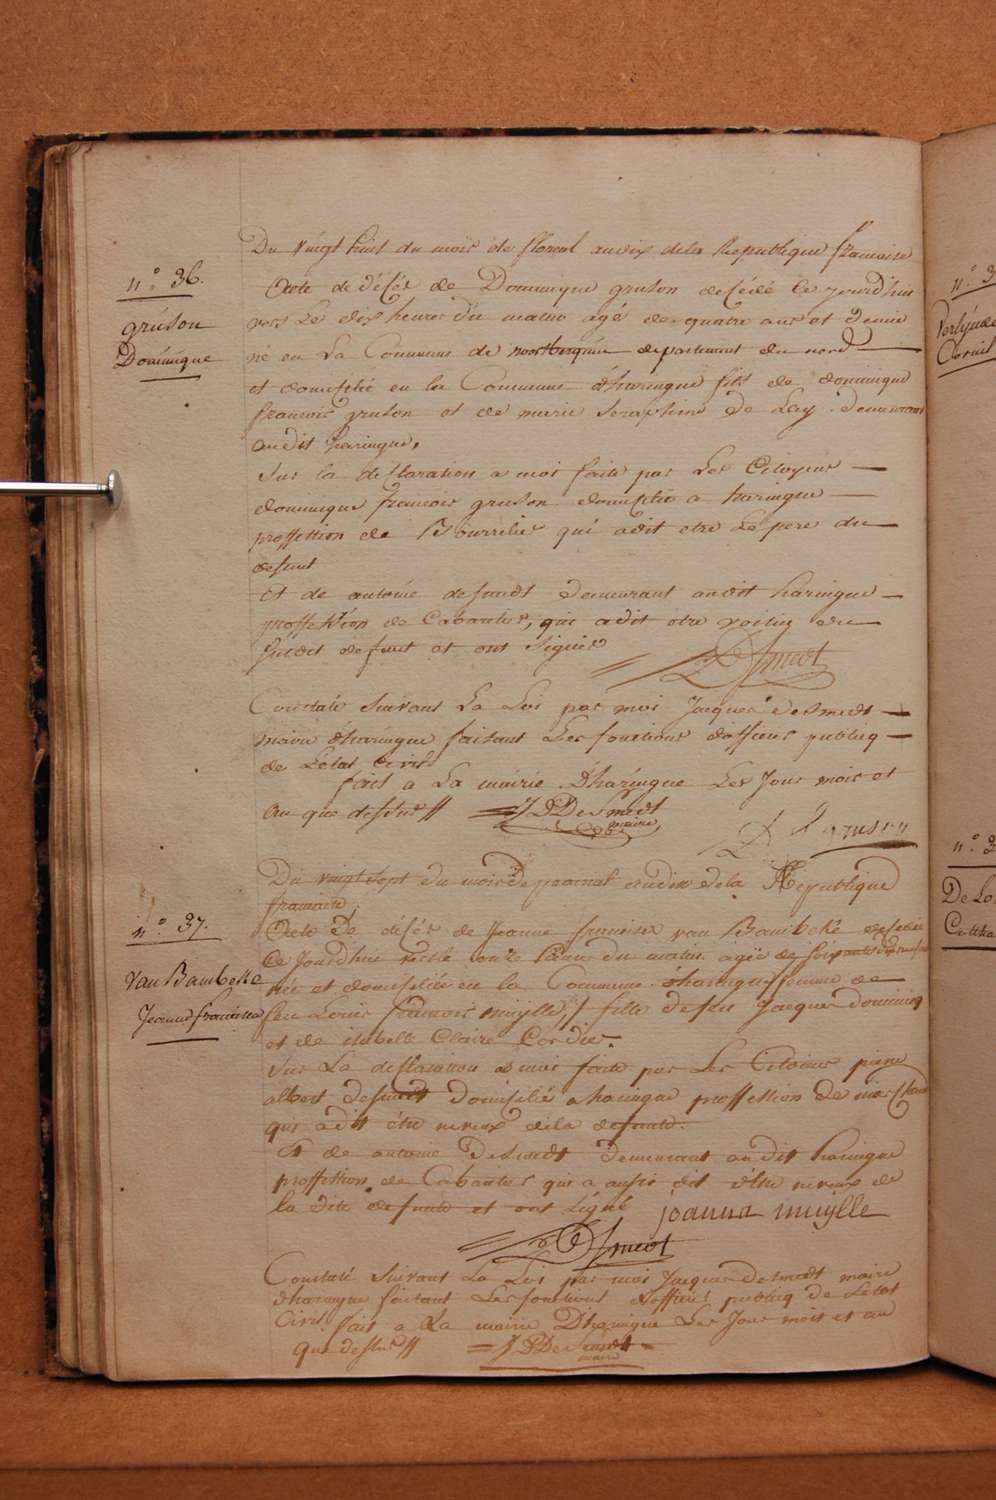 n.° 36.
gruson
Dominique
Du vaingt huit du mois de floreal an dix de la Republique francaise
Acte de décés de Dominique gruson decédé ce jourd'hui
vers les dix heures du matin agé de quatre ans et demie
né en La Commune de departement du nord
et domicilié en la Commune d'haringue fils de dominique
francois gruson et de marie seraphine de Lay demeurant
audit haringue,
Sur la declaration a moi faite par les Citoyens
dominique francois gruson domicilié a haringue
proffession de Bourrelier qui a dit etre le pere du
defunt
Et de antoine desmedt demeurant audit haringue
proffession de Cabaretier, qui a dit etre voisin du
susdit defunt et ont signés
Smedt
Constaté suivant La Loi par moi Jacques desmedt
maire d'haringue faisant Les fonctions d'officier publicq
de L'état Civil
fait a La mairie D'haringue Les Jour mois et
An que dessus //
J D DeSmedt
maire
D f gruson
n.° 37.
Van Bambeke
Jeanne francoise
Du vaingt sept du mois de prairial an dix de la Republique
francaise.
Acte de décés de Jeanne francoise van Bambeke decedée
Ce Jourdhui vers les onze heures du matin agée de
née et domiciliée en la Commune d'haringue femme de
feu Louis francois muijlle, fille de feu Jacques dominiq
et de isabelle Claire Cordier
Sur La declaration a moi faite par Les Citoiens pierre
albert desmedt domicilié a haringue proffession de marchand
qui a dit étre neveux de la defunte.
Et de antoine Desmedt demeurant au dit haringue
proffession de Cabaretier qui a aussi dit d'être neveux de
la dite defunte et ont signé
joanna muijlle
Smedt
Constaté suivant La Loi par moi Jacques desmedt maire
d'haringue faisant Les fonctions d'officier publicq de L'etat
Civil fait a La mairie D'haringue Les Jour mois et an
que dessus //
J D DeSmedt
maire
n.° 3
Cornil
n.° 3